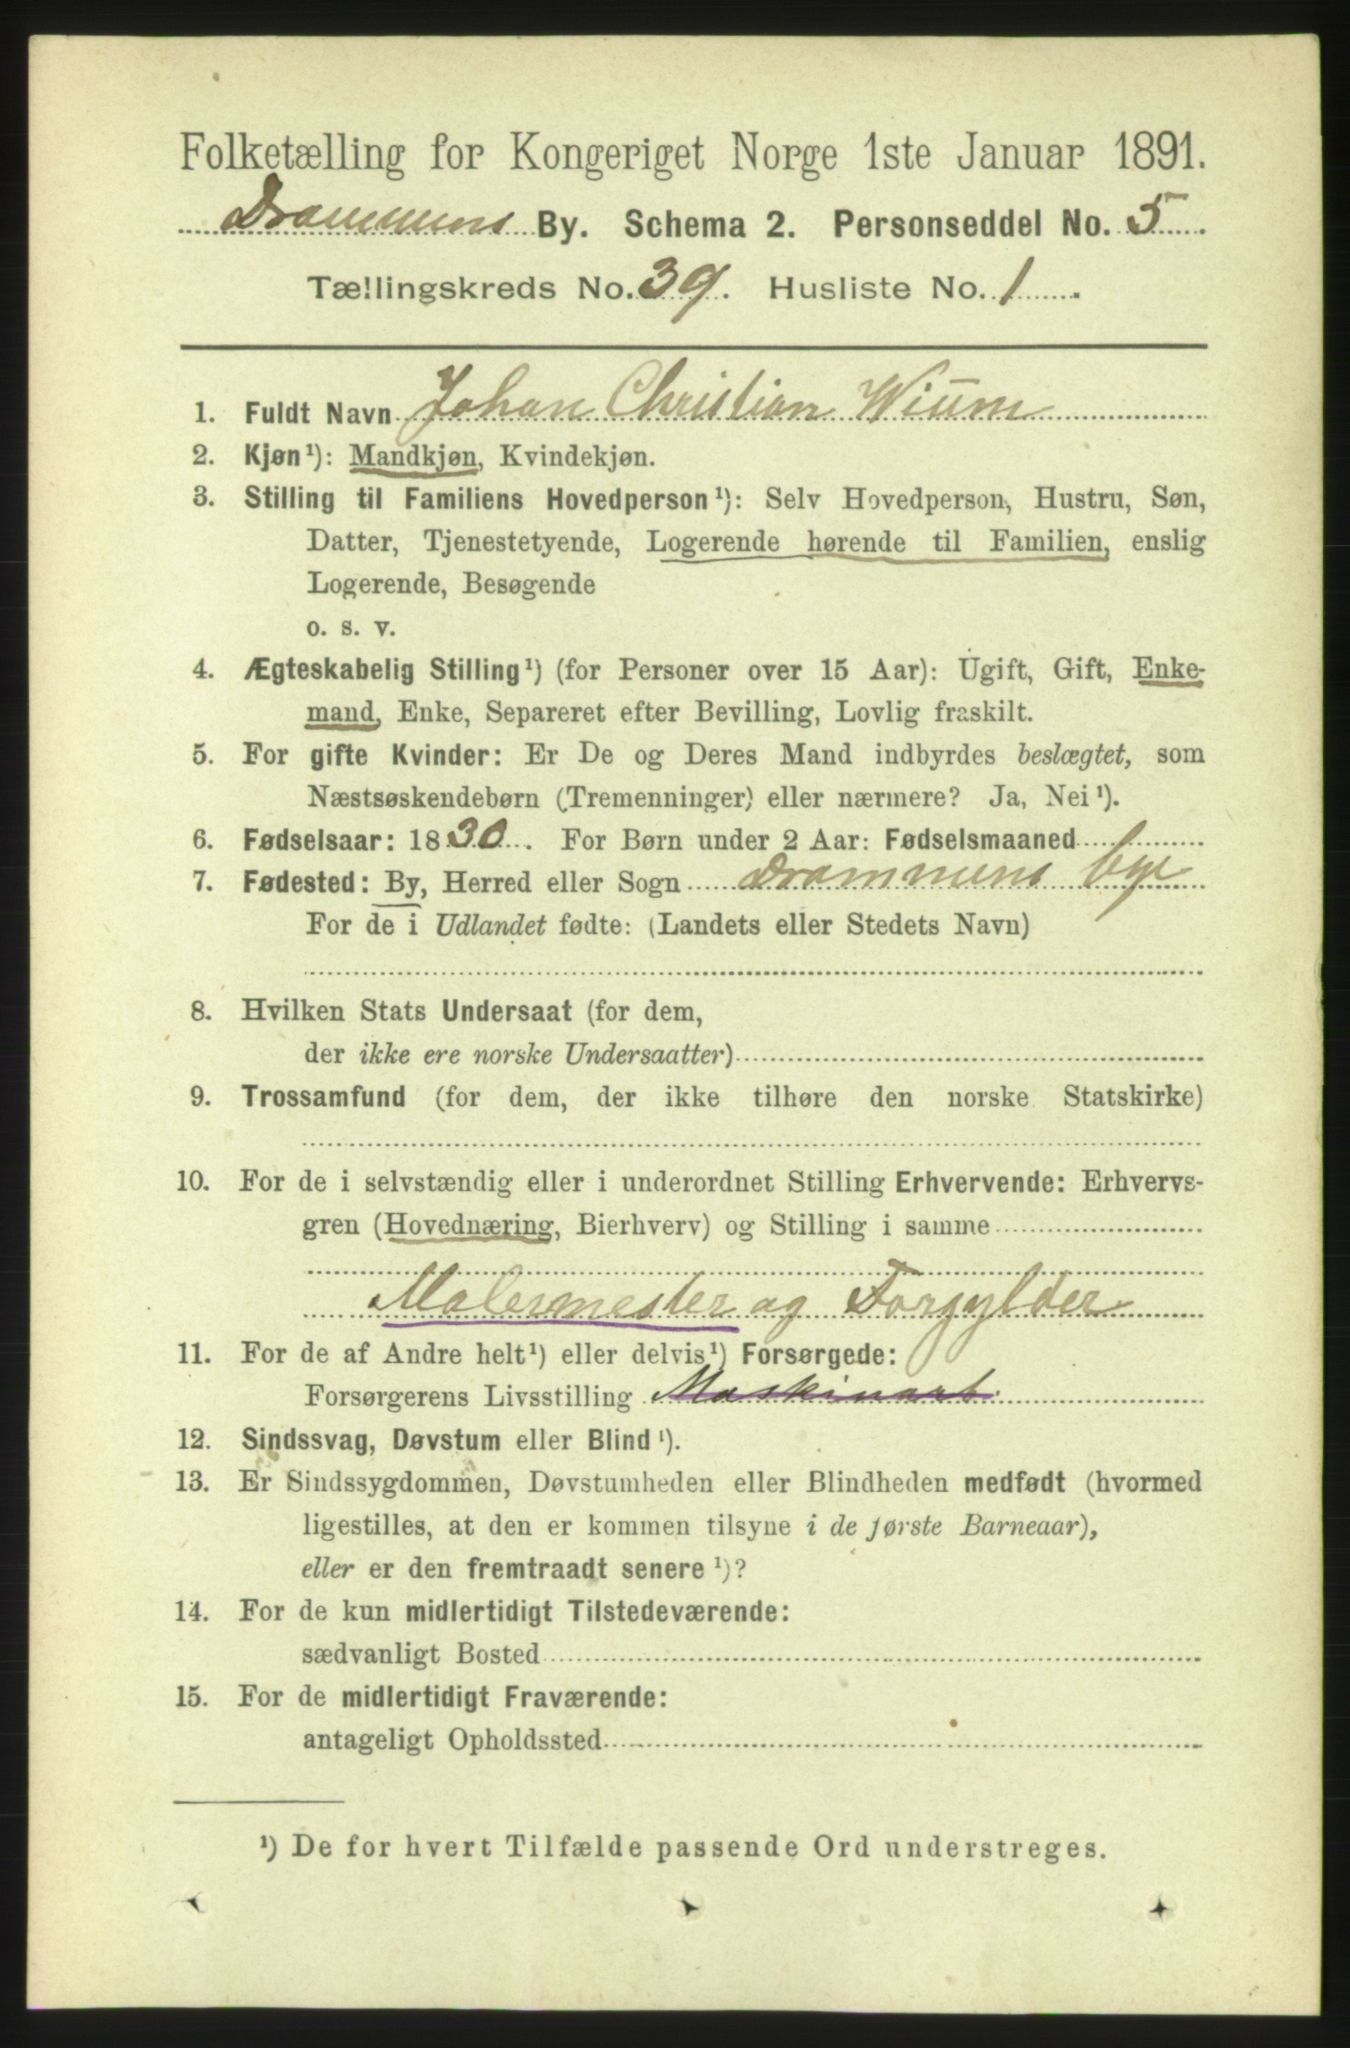 Folketælling for Kongeriget Norge 1ste Januar 1891.
Drammens By. Schema 2. Personseddel No. 5
Tællingskreds No. 39. Husliste No. 1
1. Fuldt Navn Johan Christian Wium
2. Kjøn¹): Mandkjøn, Kvindekjøn.
3. Stilling til Familiens Hovedperson¹): Selv Hovedperson, Hustru, Søn,
Datter, Tjenestetyende, Logerende hørende til Familien, enslig
Logerende, Besøgende
o. s. v.
4. Ægteskabelig Stilling¹) (for Personer over 15 Aar): Ugift, Gift, Enke-
mand, Enke, Separeret efter Bevilling, Lovlig fraskilt.
5. For gifte Kvinder: Er De og Deres Mand indbyrdes beslægtet, som
Næstsøskendebørn (Tremenninger) eller nærmere? Ja, Nei¹).
6. Fødselsaar: 1830. For Børn under 2 Aar: Fødselsmaaned
7. Fødested: By, Herred eller Sogn Drammens bye
For de i Udlandet fødte: (Landets eller Stedets Navn)
8. Hvilken Stats Undersaat (for dem,
der ikke ere norske Undersaatter)
9. Trossamfund (for dem, der ikke tilhøre den norske Statskirke)
10. For de i selvstændig eller i underordnet Stilling Erhvervende: Erhvervs-
gren (Hovednæring, Bierhverv) og Stilling i samme
Malermester og Forgylder
11. For de af Andre helt¹) eller delvis¹) Forsørgede:
Forsørgerens Livsstilling Maskinarb.
12. Sindssvag, Døvstum eller Blind¹).
13. Er Sindssygdommen, Døvstumheden eller Blindheden medfødt (hvormed
ligestilles, at den er kommen tilsyne i de første Barneaar),
eller er den fremtraadt senere¹)?
14. For de kun midlertidigt Tilstedeværende:
sædvanligt Bosted
15. For de midlertidigt Fraværende:
antageligt Opholdssted
¹) De for hvert Tilfælde passende Ord understreges.